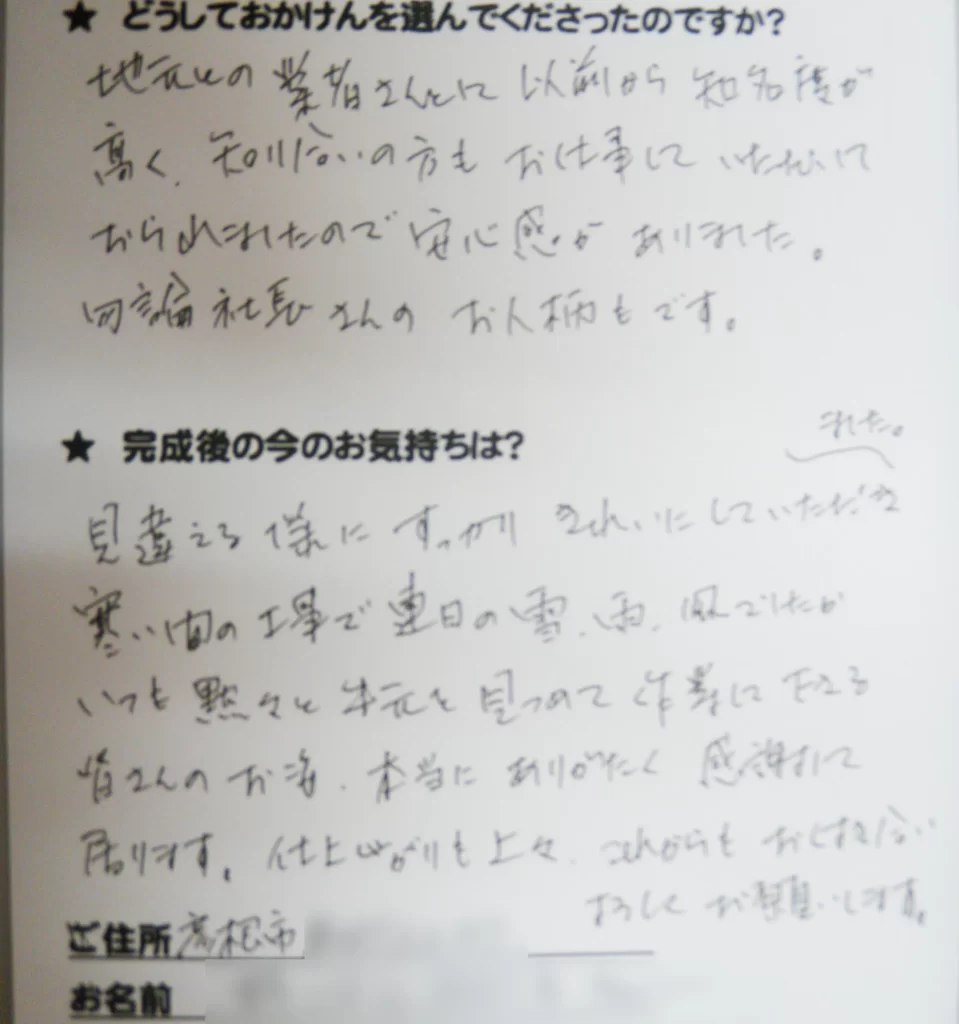 ★ どうしておかけんを選んでくださったのですか?
地元の業者さんとに以前から知名度が
高く、知り合いの方もお仕事していただいて
おられましたので安心感がありました。
勿論社長さんのお人柄もです。
★ 完成後の今のお気持ちは?
ました。
見違える様にすっかりきれいにしていただき
寒い間の工事で連日の雪、雨、風でしたが
いつも黙々と手元を見つめて作業に
皆さんのお姿、本当にありがたく感謝して
居ります。仕上がりも上々、これからもおつき合い
よろしくお願いします。
ご住所 彦根市
お名前